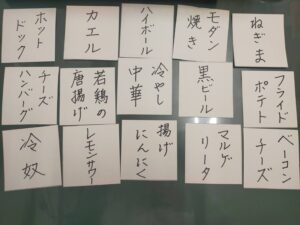 ねぎま
モダン
焼き
ハイボール
カエル
ホット
ドック
フライド
ポテト
黒ビール
冷やし
中華
若鶏の
唐揚げ
チーズ
ハンバーグ
ベーコン
チーズ
マルゲ
リータ
揚げ
にんにく
レモンサワー
冷奴